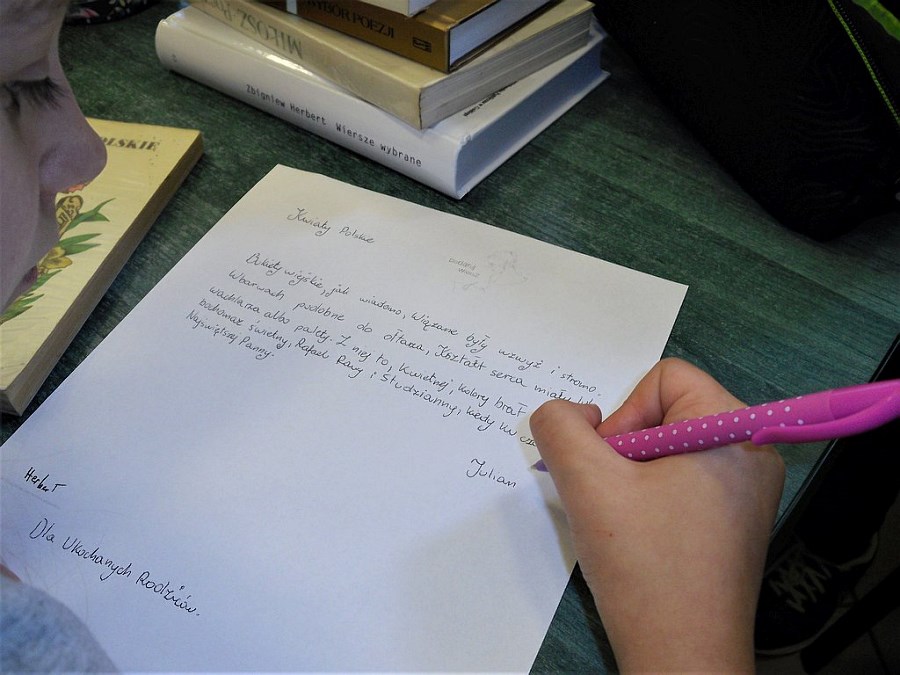 WYBÓR POEZJI
MIŁOSZ
Zbigniew Herbert Wiersze wybrane
OLSKIE
Kwiaty Polskie
Bukiety wiejskie, jak wiadomo, Wiązane były wzwyż i stromo.
W barwach podobne do ołtarza, Kształt serca miały
wachlarza albo palety. Z niej to, Kwietnej, kolory brał
bohomaz świetny, Rafael Rawy i Studzianny, kiedy ku
Najświętszej Panny.
Julian
Herbert
Dla Ukochanych Rodziców.